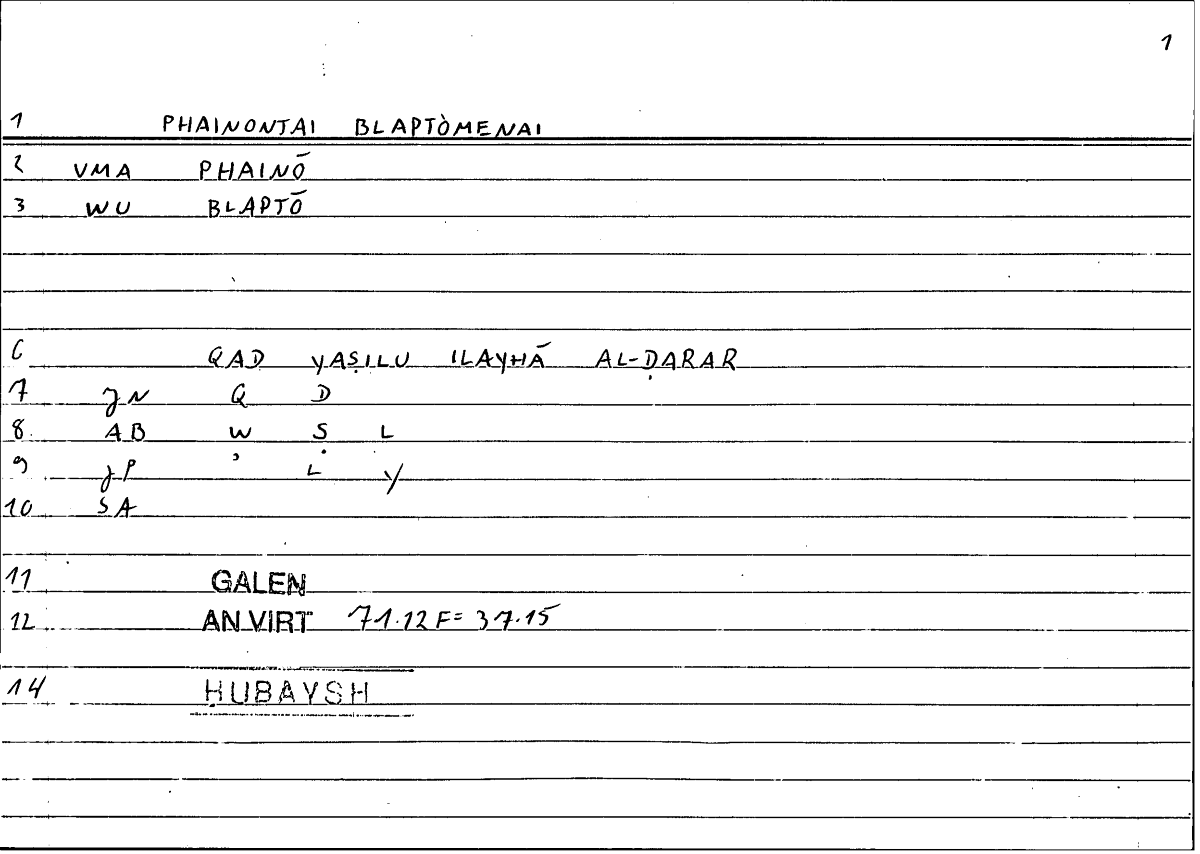 1
1 PHAINONTAI BLAPTÒMENAI
2 VMA PHAINŌ
3 WU BLAPTŌ
6 QAD YAṢILU ILAYHĀ AL-ḌARAR
7 JN Q D
8 AB W Ṣ L
9 JP ʾ L Y
10 SA
11 GALEN
12 AN VIRT 71.12 F = 37.15
14 ḤUBAYSH